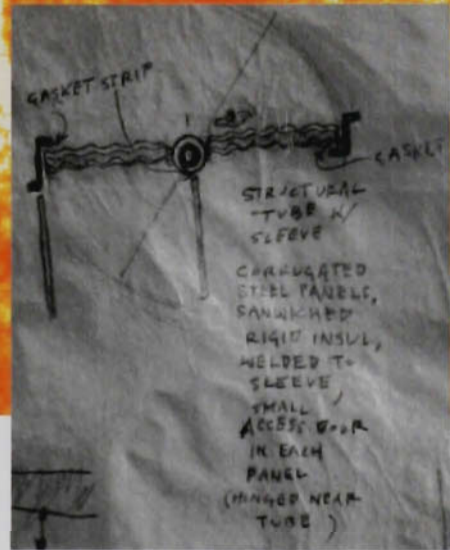 GASKET STRIP
GASKET
STRUCTURAL
TUBE W/
SLEEVE
CORRUGATED
STEEL PANELS,
SANWICHED
RIGID INSUL,
WELDED TO
SLEEVE,
SMALL
ACCESS DOOR
IN EACH
PANEL
(HINGED NEAR
TUBE)